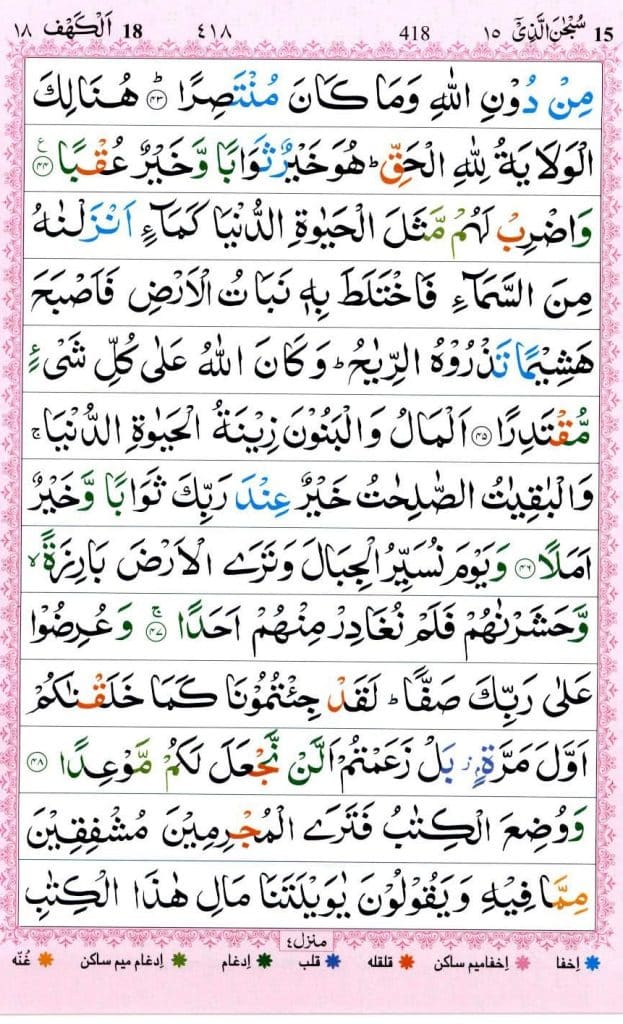 15 سُبْحٰنَ الَّذِیْۤ ١٥ 418 ٤١٨ 18 اَلْكَهْف ١٨
مِنْ دُوْنِ اللّٰهِ وَمَا كَانَ مُنْتَصِرًا ؕ﴿۴۳﴾ هُنَالِكَ
الْوَلَایَةُ لِلّٰهِ الْحَقِّ ؕ هُوَ خَیْرٌ ثَوَابًا وَّخَیْرٌ عُقْبًا ﴿۴۴﴾ ع
وَاضْرِبْ لَهُمْ مَّثَلَ الْحَیٰوةِ الدُّنْیَا كَمَآءٍ اَنْزَلْنٰهُ
مِنَ السَّمَآءِ فَاخْتَلَطَ بِهٖ نَبَاتُ الْاَرْضِ فَاَصْبَحَ
هَشِیْمًا تَذْرُوْهُ الرِّیٰحُ ؕ وَكَانَ اللّٰهُ عَلٰی كُلِّ شَیْءٍ
مُّقْتَدِرًا ﴿۴۵﴾ اَلْمَالُ وَالْبَنُوْنَ زِیْنَةُ الْحَیٰوةِ الدُّنْیَا ۚ
وَالْبٰقِیٰتُ الصّٰلِحٰتُ خَیْرٌ عِنْدَ رَبِّكَ ثَوَابًا وَّخَیْرٌ
اَمَلًا ﴿۴۶﴾ وَیَوْمَ نُسَیِّرُ الْجِبَالَ وَتَرَی الْاَرْضَ بَارِزَةً ۙ
وَّحَشَرْنٰهُمْ فَلَمْ نُغَادِرْ مِنْهُمْ اَحَدًا ۚ﴿۴۷﴾ وَعُرِضُوْا
عَلٰی رَبِّكَ صَفًّا ؕ لَقَدْ جِئْتُمُوْنَا كَمَا خَلَقْنٰكُمْ
اَوَّلَ مَرَّةٍۭ ؗ بَلْ زَعَمْتُمْ اَلَّنْ نَّجْعَلَ لَكُمْ مَّوْعِدًا ﴿۴۸﴾
وَوُضِعَ الْكِتٰبُ فَتَرَی الْمُجْرِمِیْنَ مُشْفِقِیْنَ
مِمَّا فِیْهِ وَیَقُوْلُوْنَ یٰوَیْلَتَنَا مَالِ هٰذَا الْكِتٰبِ
منزل ٤
اِخفا اِخفامیم ساکن قلقله قلب اِدغام اِدغام میم ساکن غُنّه